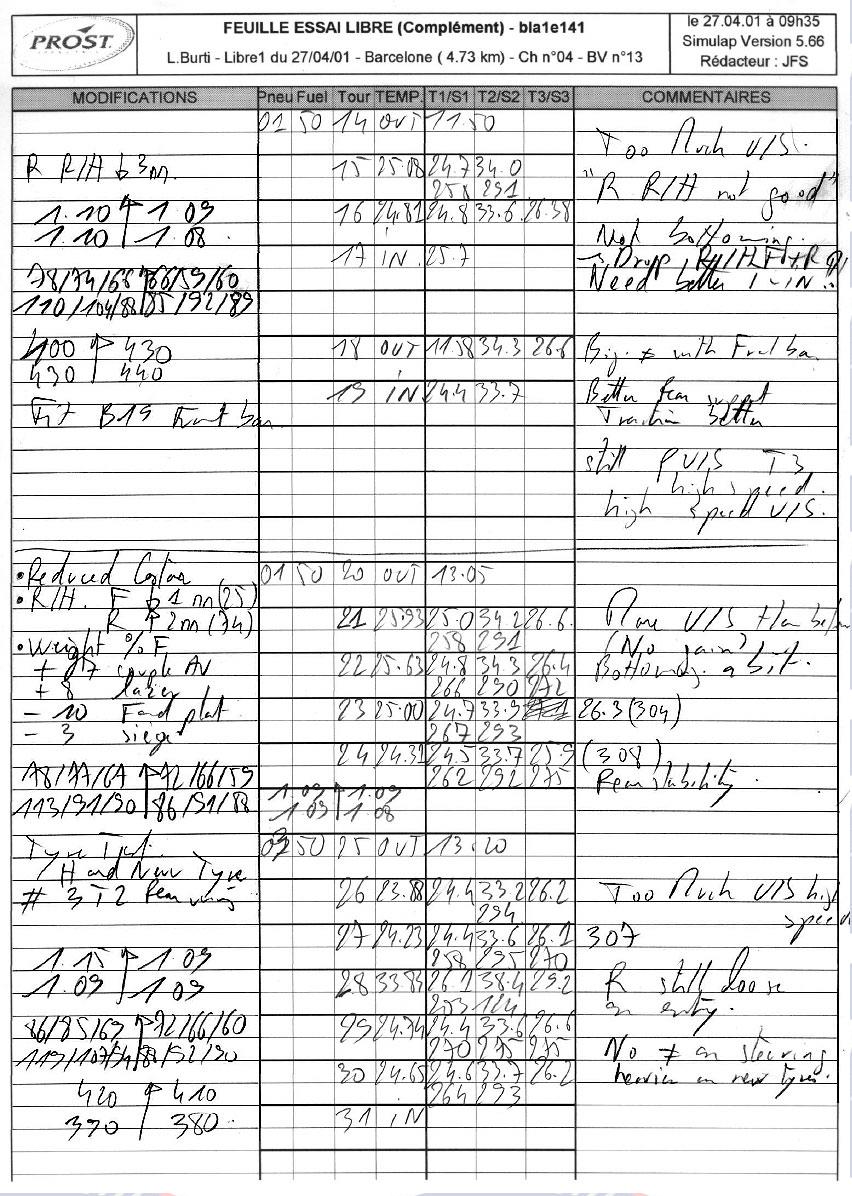 PROST
FEUILLE ESSAI LIBRE (Complément) - bla1e141
L.Burti - Libre1 du 27/04/01 - Barcelone ( 4.73 km) - Ch n°04 - BV n°13
le 27.04.01 à 09h35
Simulap Version 5.66
Rédacteur : JFS
MODIFICATIONS Pneu Fuel Tour TEMP. T1/S1 T2/S2 T3/S3 COMMENTAIRES
01 50 14 OUT 11.50
Too Much U/S.
R R/H ↓ 3m. 15 25.08 24.7 34.0
258 291 "R R/H not good"
1.10 ↑ 1.09 16 24.81 24.8 33.6 26.38
1.10 1.08 Not bottoming.
17 IN 25.7 → Drop R/H F+R
78/74/68 ↑ 66/59/60 Need better T-IN
110/104/88 85/92/89
400 ↑ 430 18 OUT 11.58 34.3 26.6 Big ≠ with Front bar
430 440
19 IN 24.4 33.7 Better rear support
Fit B19 Front bar Traction better
still U/S T3
high speed.
high speed U/S.
•Reduced 01 50 20 OUT 13.05
•R/H. F ↓ 1m (25)
R ↑ 2m (74) 21 25.93 25.0 34.2 26.6 More U/S than before
•Weight % F 258 291 (No gain)
+ 07 couple AV 22 25.63 24.8 34.3 26.4 Bottoming a bit.
+ 8 266 290 272
- 10 Fond plat 23 25.00 24.7 33.9 26.3 (304)
- 3 siege 267 293
24 24.32 24.5 33.7 25.9 (308)
78/77/67 ↑ 72/66/59 262 292 275 Rear stability.
113/91/90 86/91/88 1.09 ↑ 1.09
1.09 1.08
Tyre Test. 50 25 OUT 13.20
Hard New Tyre
# 3 T2 Rear 26 23.88 24.4 33.2 26.2 Too Much U/S high
294 speed
27 24.23 24.4 33.6 26.1 307
1.15 ↑ 1.09 258 295 270
1.09 1.09 28 33.84 26.1 38.4 29.2 R still loose
253 124 on entry.
86/85/69 ↑ 72/66/60 29 24.74 24.4 33.6 26.6
119/107/94 88/92/90 270 275 275 No ≠ on steering
30 24.65 24.6 33.7 26.2 heavier on new tyres.
420 ↑ 410 264 293
390 380 31 IN